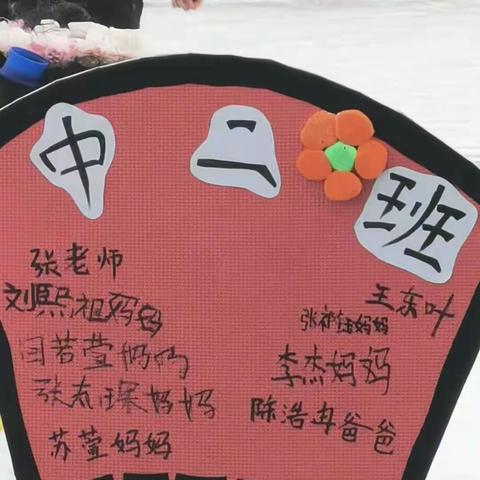 中二班
张老师
刘熙祖妈妈
闫若萱妈妈
张有琛妈妈
苏萱妈妈
王东叶
妈妈
李杰妈妈
陈浩冉爸爸